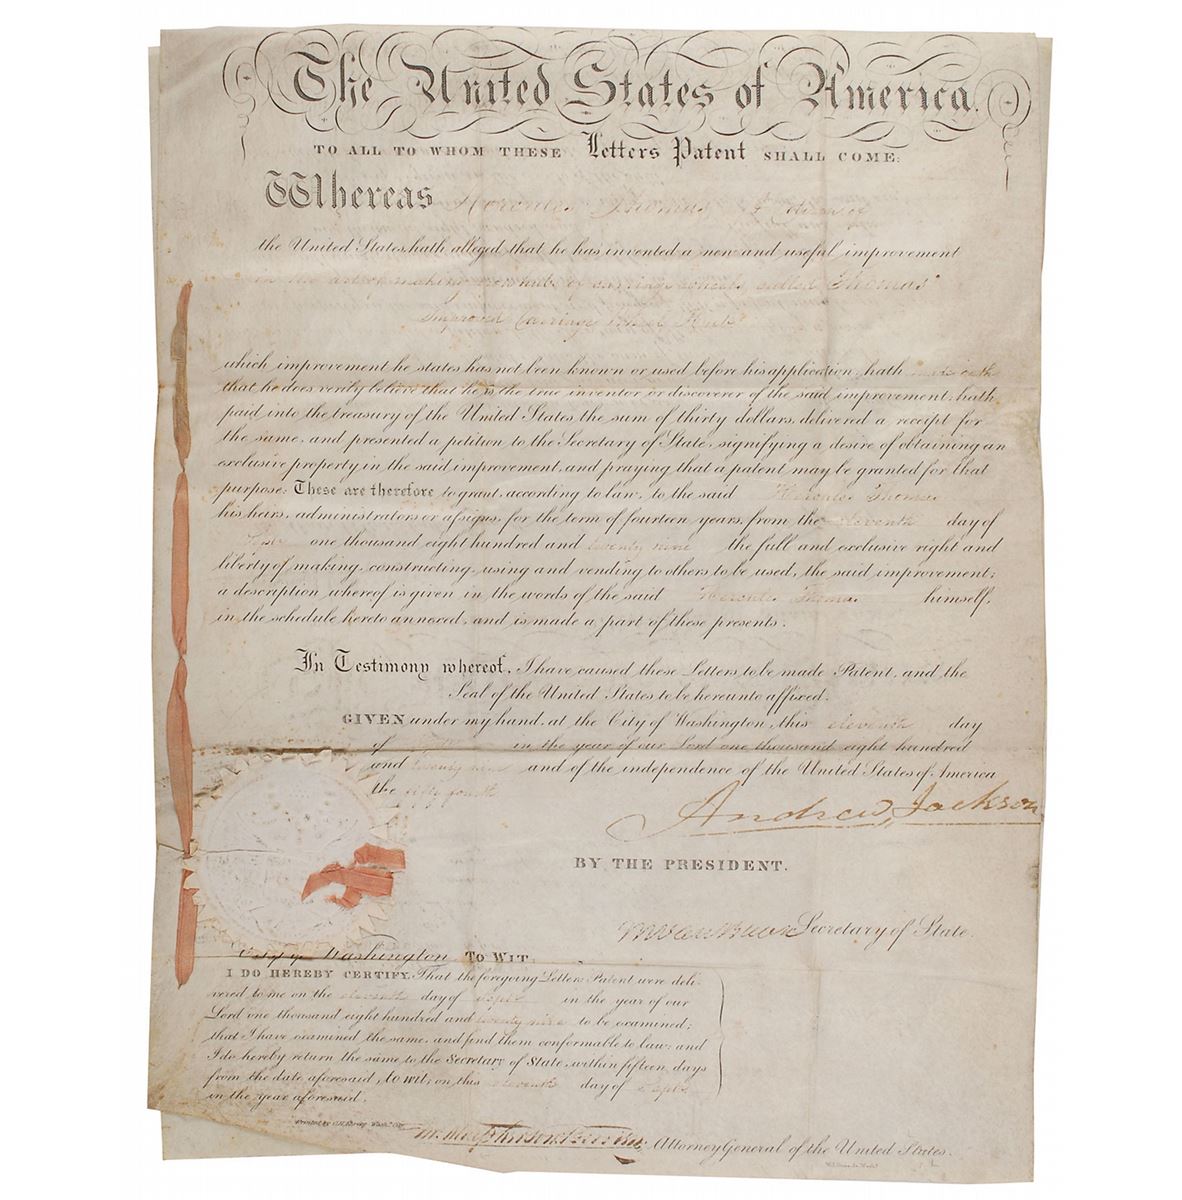 The United States of America.
TO ALL TO WHOM THESE Letters Patent SHALL COME:
Whereas Hercules Thomas a Citizen of
the United States, hath alleged that he has invented a new and useful improvement
in the art of making iron hubs of carriage wheels, called Thomas'
Improved Carriage wheel Hubs
which improvement he states has not been known or used before his application, hath made oath
that he does verily believe that he is the true inventor or discoverer of the said improvement, hath
paid into the treasury of the United States the sum of thirty dollars, delivered a receipt for
the same, and presented a petition to the Secretary of State, signifying a desire of obtaining an
exclusive property in the said improvement, and praying that a patent may be granted for that
purpose: These are therefore to grant, according to law, to the said Hercules Thomas
his heirs, administrators or assigns, for the term of fourteen years, from the eleventh day of
one thousand eight hundred and twenty nine the full and exclusive right and
liberty of making, constructing, using and vending to others to be used, the said improvement;
a description whereof is given in the words of the said Hercules Thomas himself,
in the schedule hereto annexed, and is made a part of these presents.
In Testimony whereof, I have caused these Letters to be made Patent, and the
Seal of the United States to be hereunto affixed.
GIVEN under my hand, at the City of Washington, this eleventh day
of in the year of our Lord one thousand eight hundred
and twenty nine and of the independence of the United States of America
the fifty fourth
Andrew Jackson
BY THE PRESIDENT.
M Van Buren Secretary of State.
City of Washington, TO WIT:
I DO HEREBY CERTIFY, That the foregoing Letters Patent were deli-
vered to me on the eleventh day of Sept in the year of our
Lord one thousand eight hundred and twenty nine to be examined;
that I have examined the same, and find them conformable to law; and
I do hereby return the same to the Secretary of State, within fifteen days
from the date aforesaid, to wit: on this eleventh day of Sept
in the year aforesaid.
Attorney General of the United States.